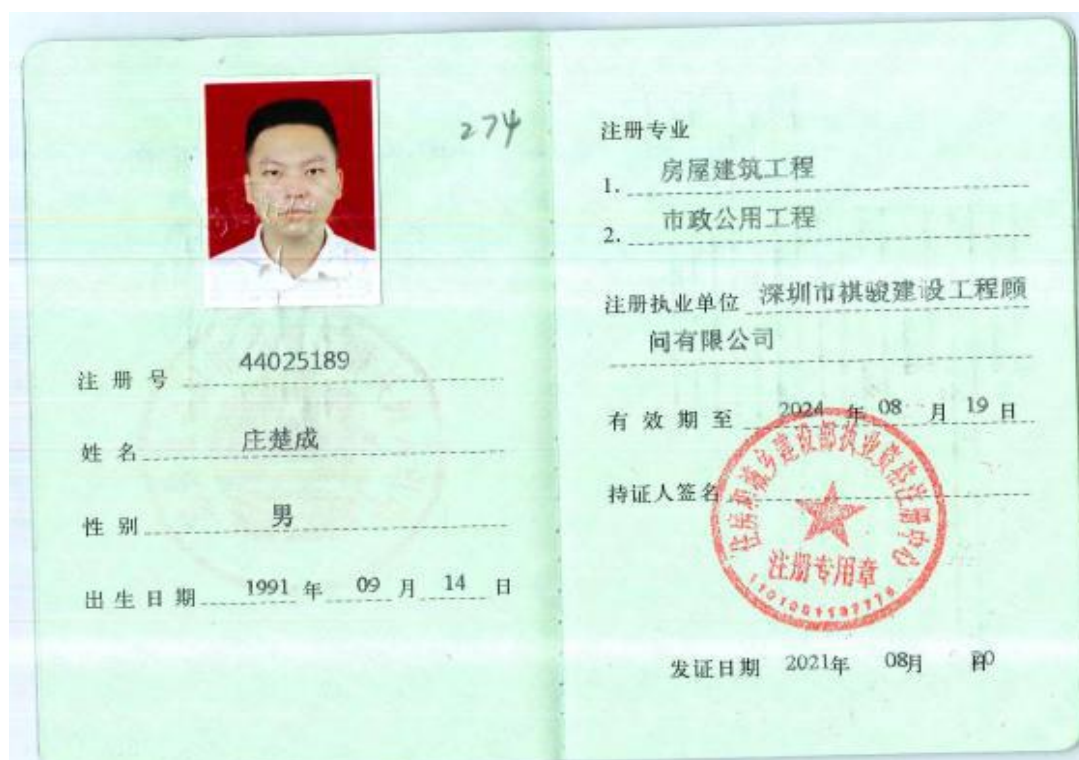 274
注 册 号 44025189
姓 名 庄楚成
性 别 男
出 生 日 期 1991 年 09 月 14 日
注册专业
1. 房屋建筑工程
2. 市政公用工程
注册执业单位 深圳市祺骏建设工程顾
问有限公司
有 效 期 至 2024 年 08 月 19 日
持证人签名
住房和城乡建设部执业资格注册中心
注册专用章
发证日期 2021年 08月 20日